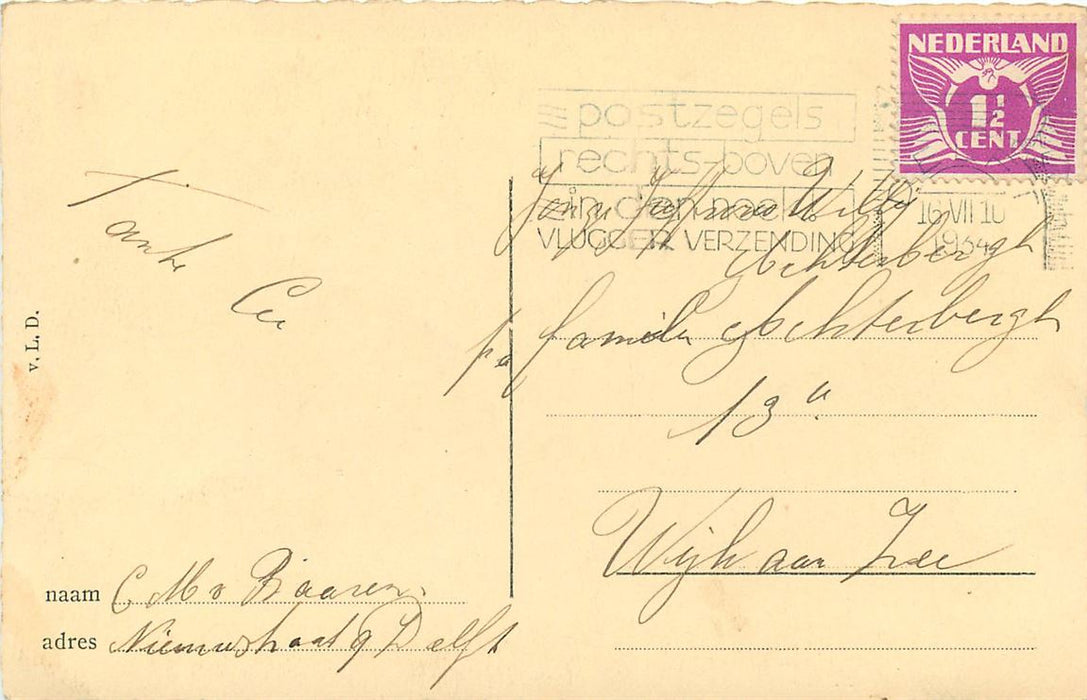 NEDERLAND
1½
CENT
postzegels
rechts-boven
in den hoek
VLUGGER VERZENDING
16 VII 10
1934
Tante
Cu
Willy
Achterbergh
p/a familie Achterbergh
13a
Wijk aan Zee
v. L. D.
naam C M v Baaren.
adres Nieuwstraat 9 Delft